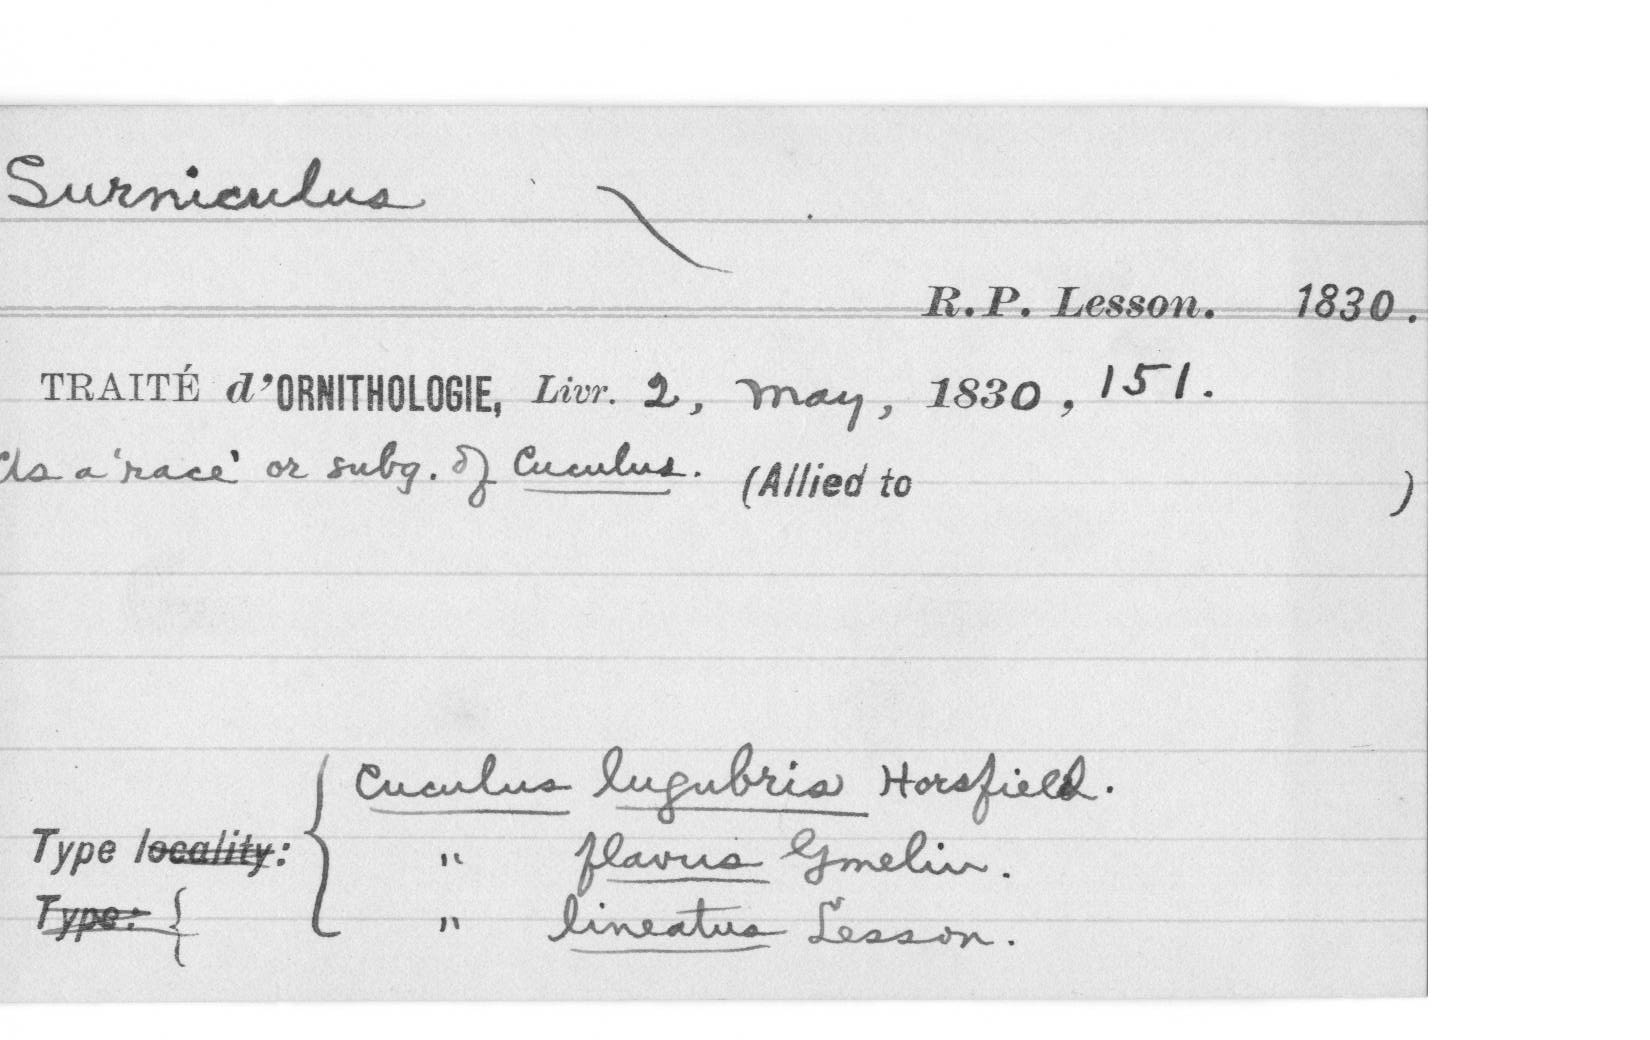 Surniculus
R.P. Lesson. 1830.
TRAITÉ d'ORNITHOLOGIE, Livr. 2, May, 1830, 151.
As a 'race' or subg. of Cuculus. (Allied to )
Cuculus lugubris Horsfield.
Type locality: " flavus Gmelin.
Type: " lineatus Lesson.